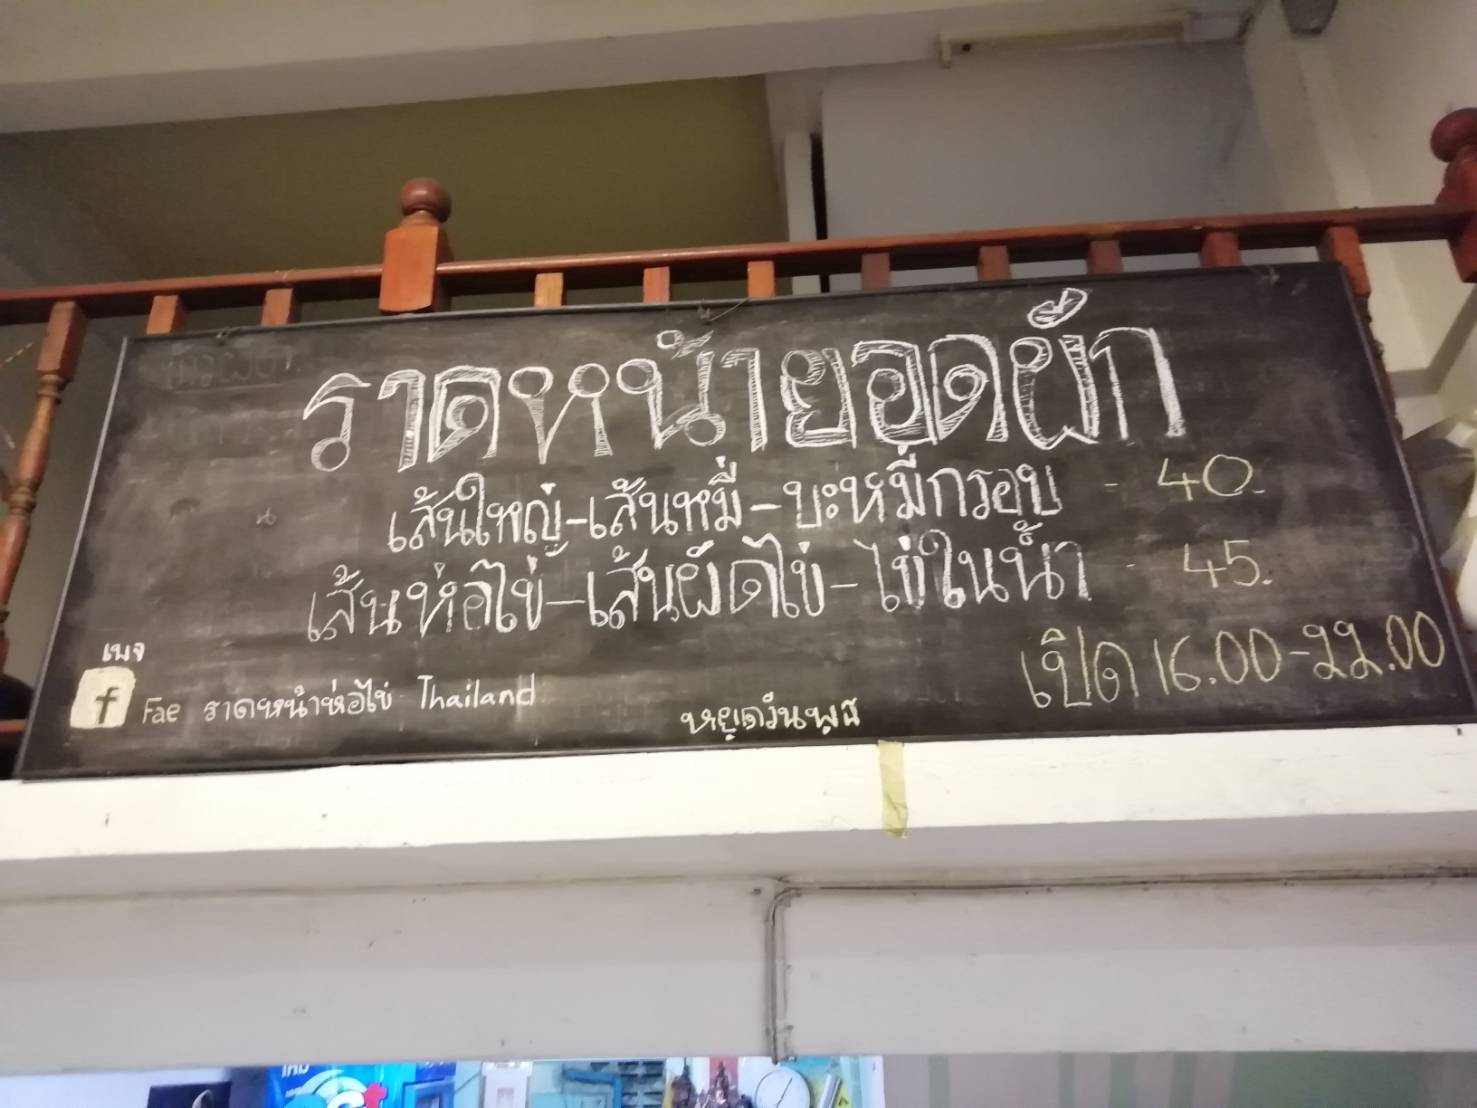 ราดหน้ายอดผัก
เส้นใหญ่-เส้นหมี่-บะหมี่กรอบ - 40.-
เส้นห่อไข่-เส้นผัดไข่-ไข่ในน้ำ - 45.
เปิด 16.00-22.00
เพจ
f Fae ราดหน้าห่อไข่ Thailand
หยุดวันพุธ